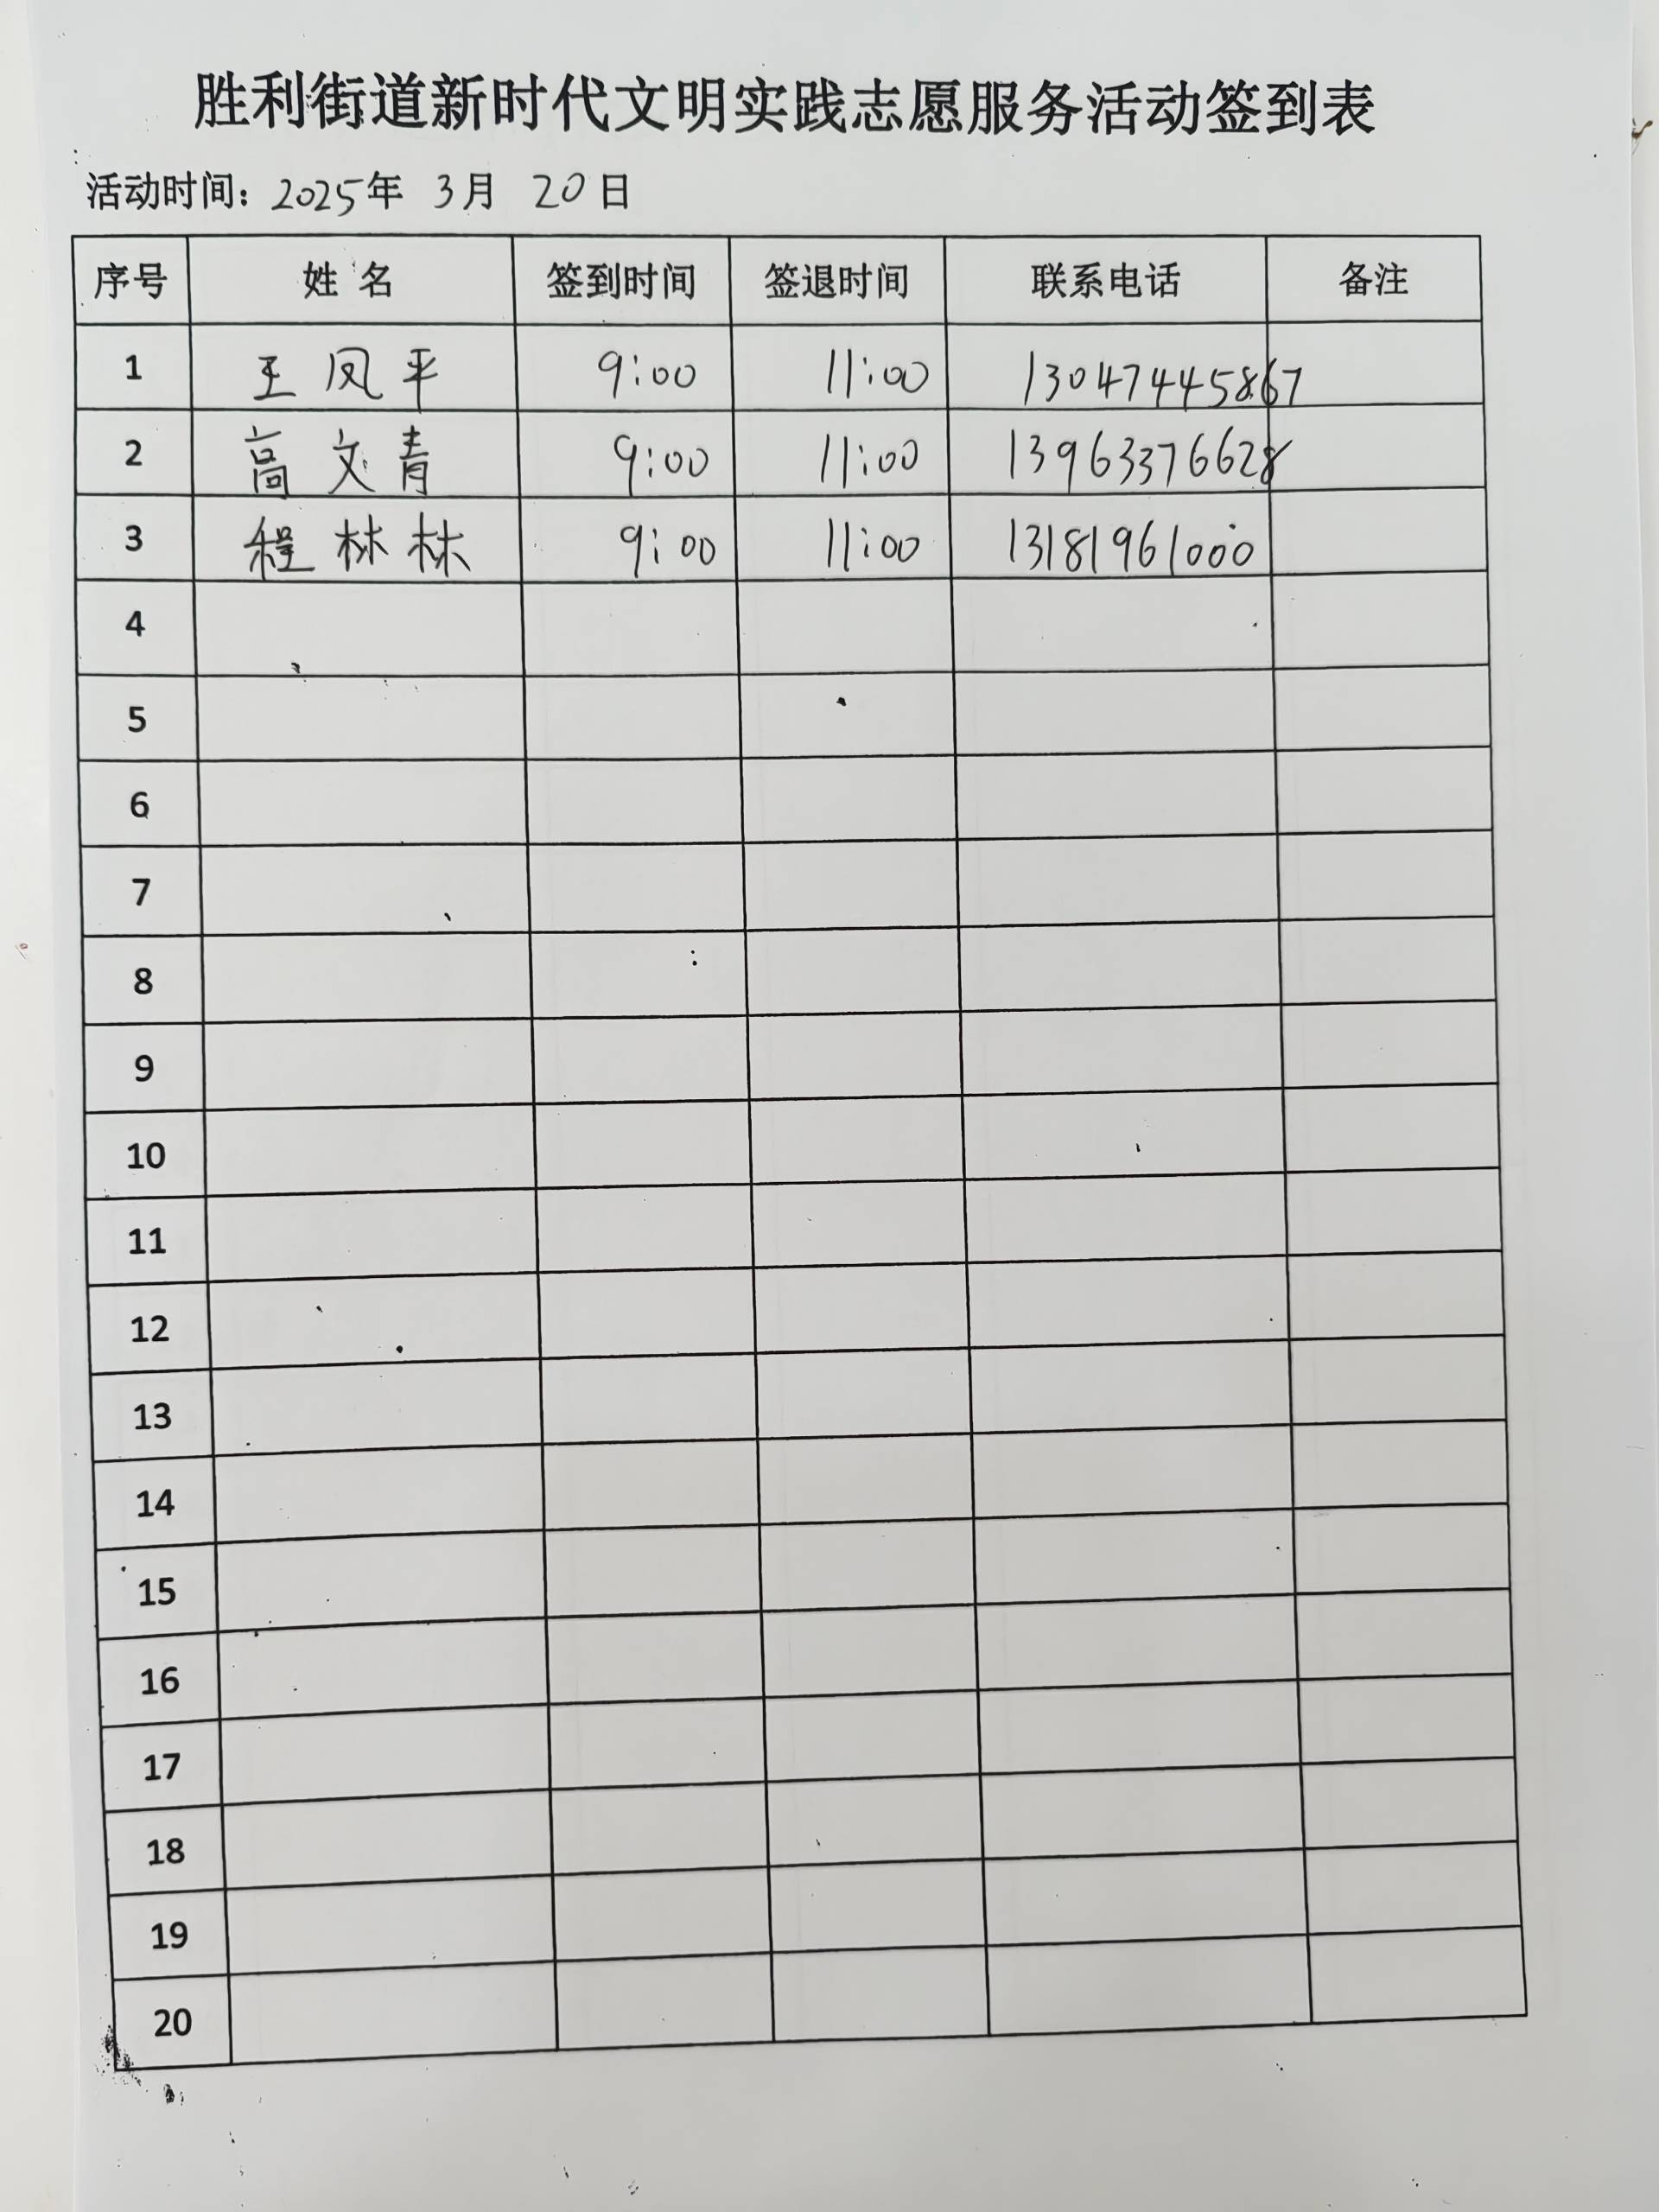 胜利街道新时代文明实践志愿服务活动签到表
活动时间：2025年 3月 20日
序号 姓 名 签到时间 签退时间 联系电话 备注
1 王凤平 9:00 11:00 13047445867
2 高文青 9:00 11:00 13963376628
3 程林林 9:00 11:00 13181961000
4
5
6
7
8
9
10
11
12
13
14
15
16
17
18
19
20